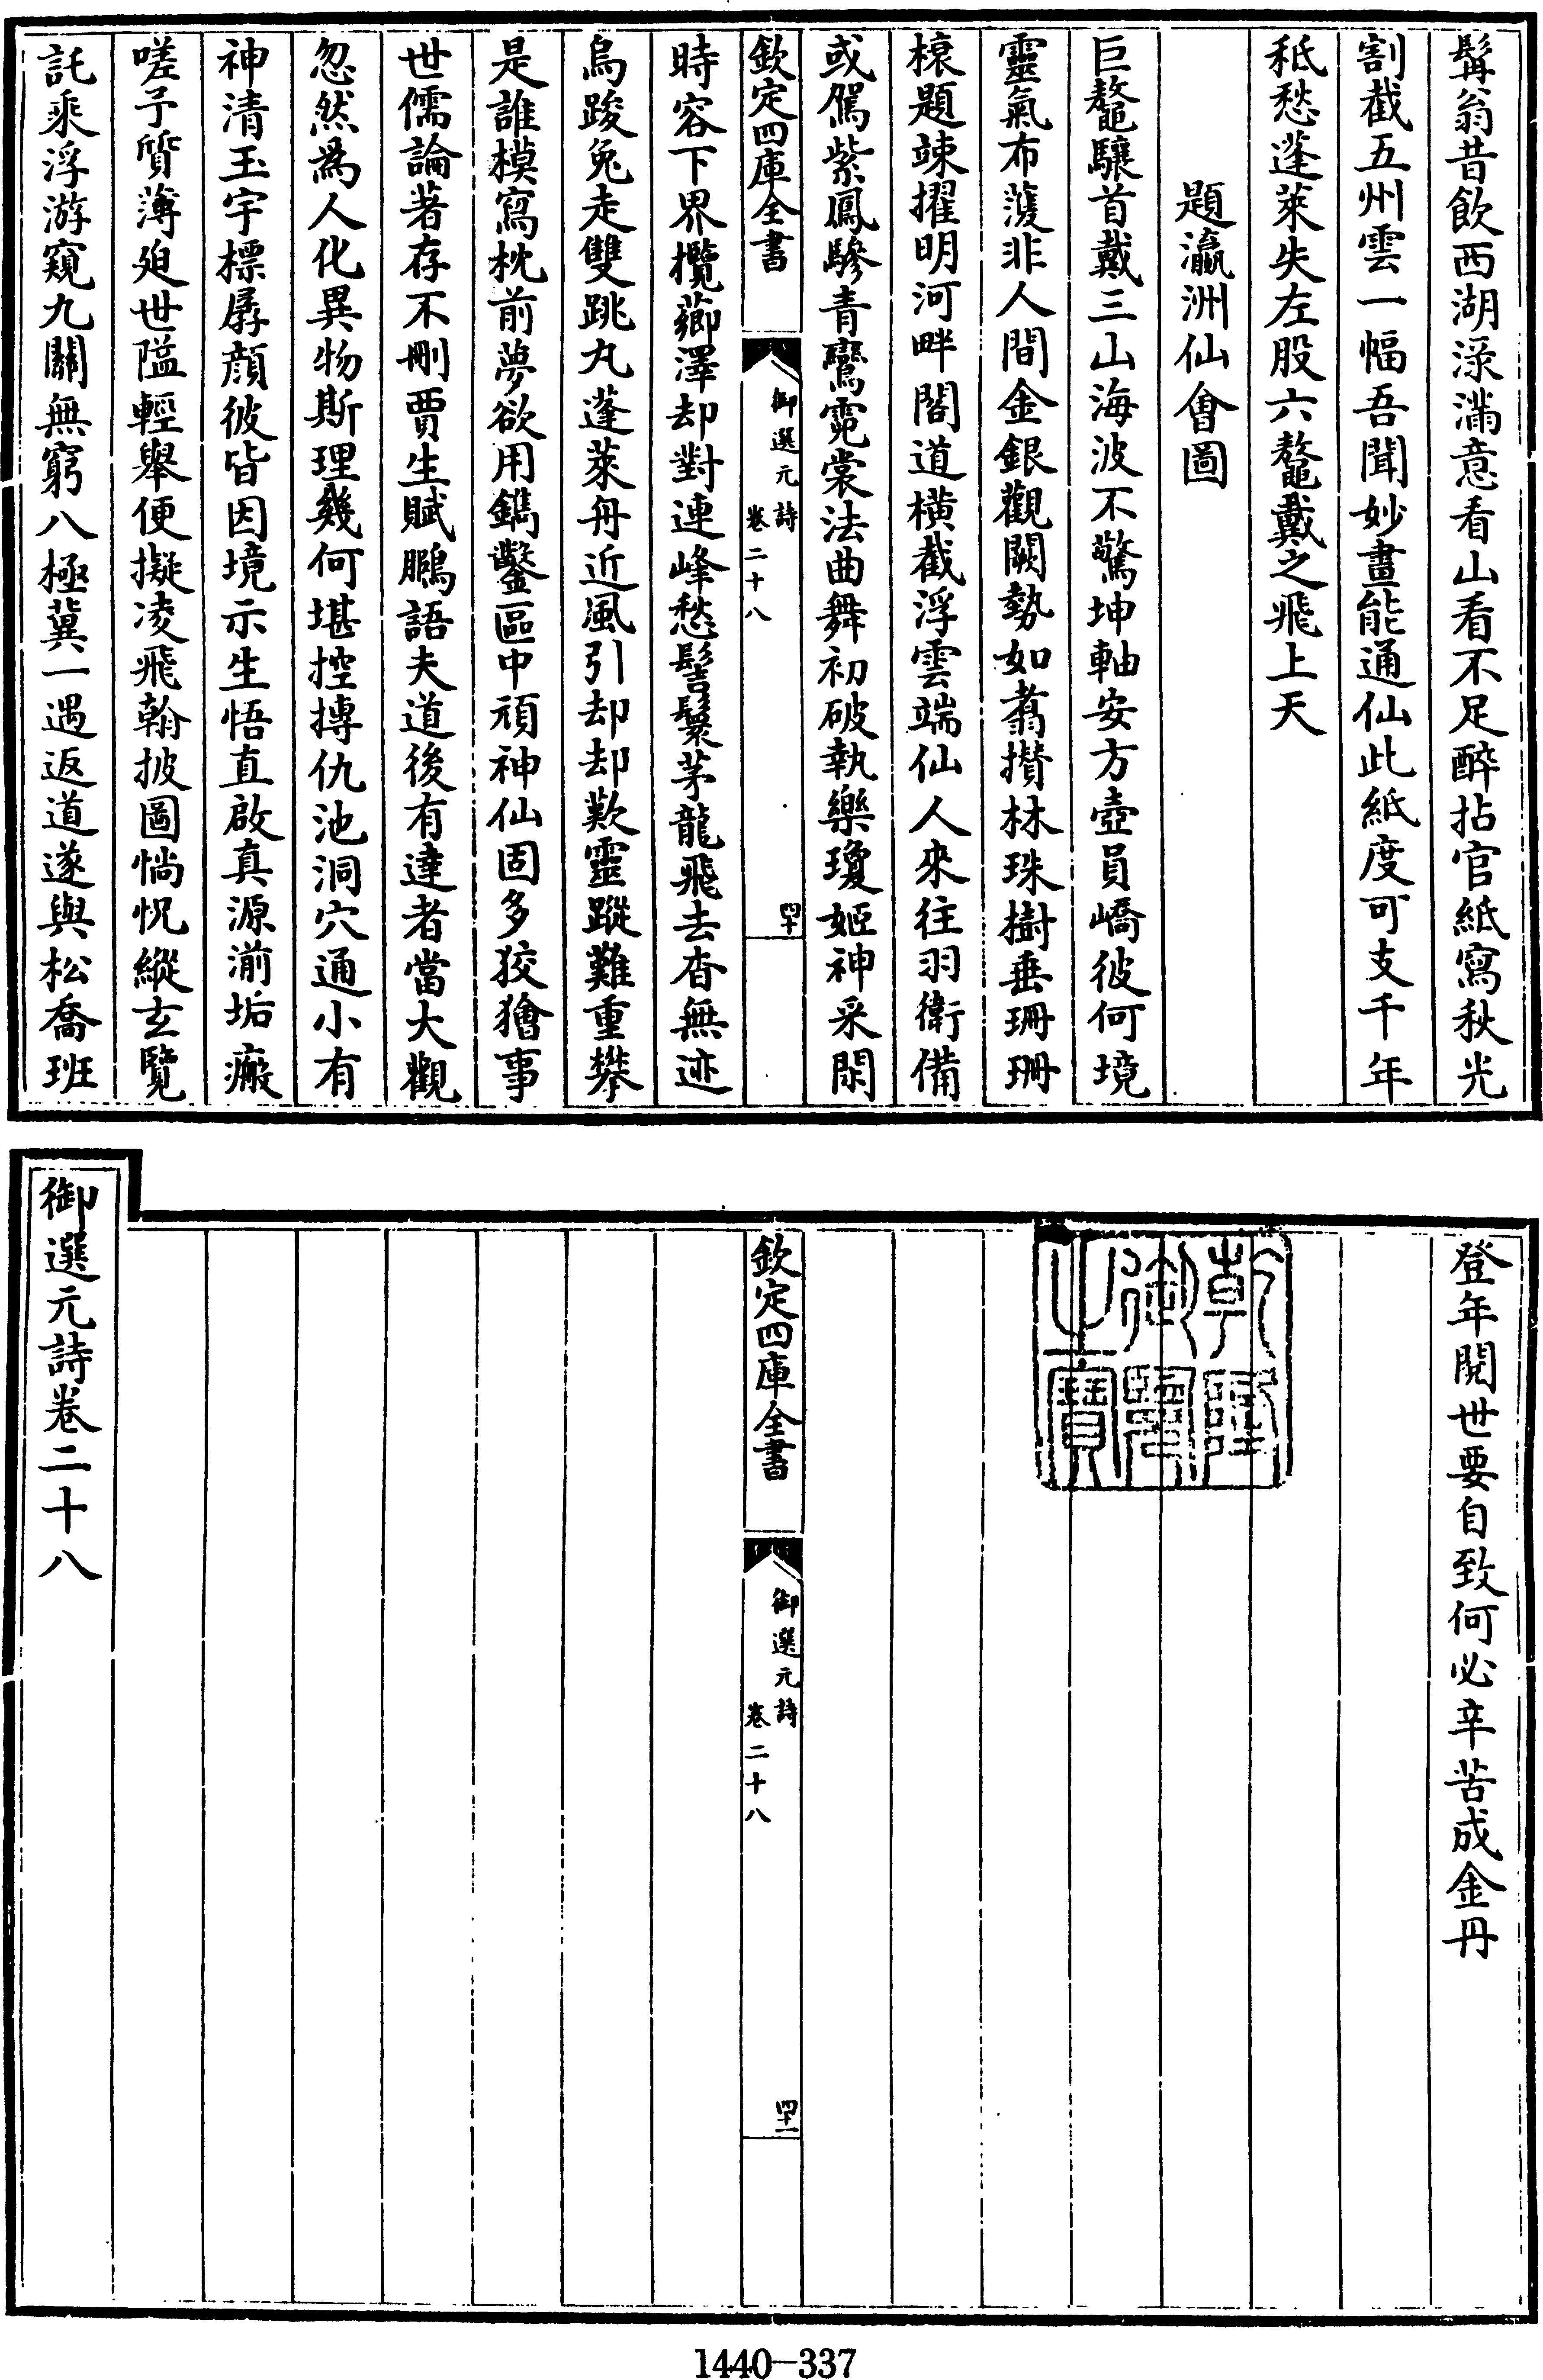 髯翁昔飲西湖渌滿意看山看不足醉拈官紙寫秋光
割截五州雲一幅吾聞妙畫能通仙此紙度可支千年
秪愁蓬萊失左股六鼇戴之飛上天
題瀛洲仙會圖
巨鼇驤首戴三山海波不驚坤軸安方壺員嶠彼何境
靈氣布濩非人間金銀觀闕勢如翥攅林珠樹垂珊珊
榱題竦擢明河畔閣道橫截浮雲端仙人來往羽衛備
或駕紫鳳驂青鸞霓裳法曲舞初破執樂瓊姬神采閑
欽定四庫全書
御選元詩
卷二十八
四十
時容下界攬薌澤却對連峰愁髻鬟茅龍飛去杳無迹
烏踆兔走雙跳丸蓬萊舟近風引却却歎靈蹤難重攀
是誰模寫枕前夢欲用鐫鑿區中頑神仙固多狡獪事
世儒論著存不刪賈生賦鵩語夫道後有達者當大觀
忽然為人化異物斯理幾何堪控摶仇池洞穴通小有
神清玉宇標孱顔彼皆因境示生悟直啟真源湔垢瘢
嗟予質薄廹世隘輕舉便擬凌飛翰披圖惝怳縱玄覽
託乘浮游窺九關無窮八極冀一遇返道遂與松喬班
登年閱世要自致何必辛苦成金丹
乾隆
御覽
之寶
欽定四庫全書
御選元詩
卷二十八
四十一
御選元詩卷二十八
1440—337